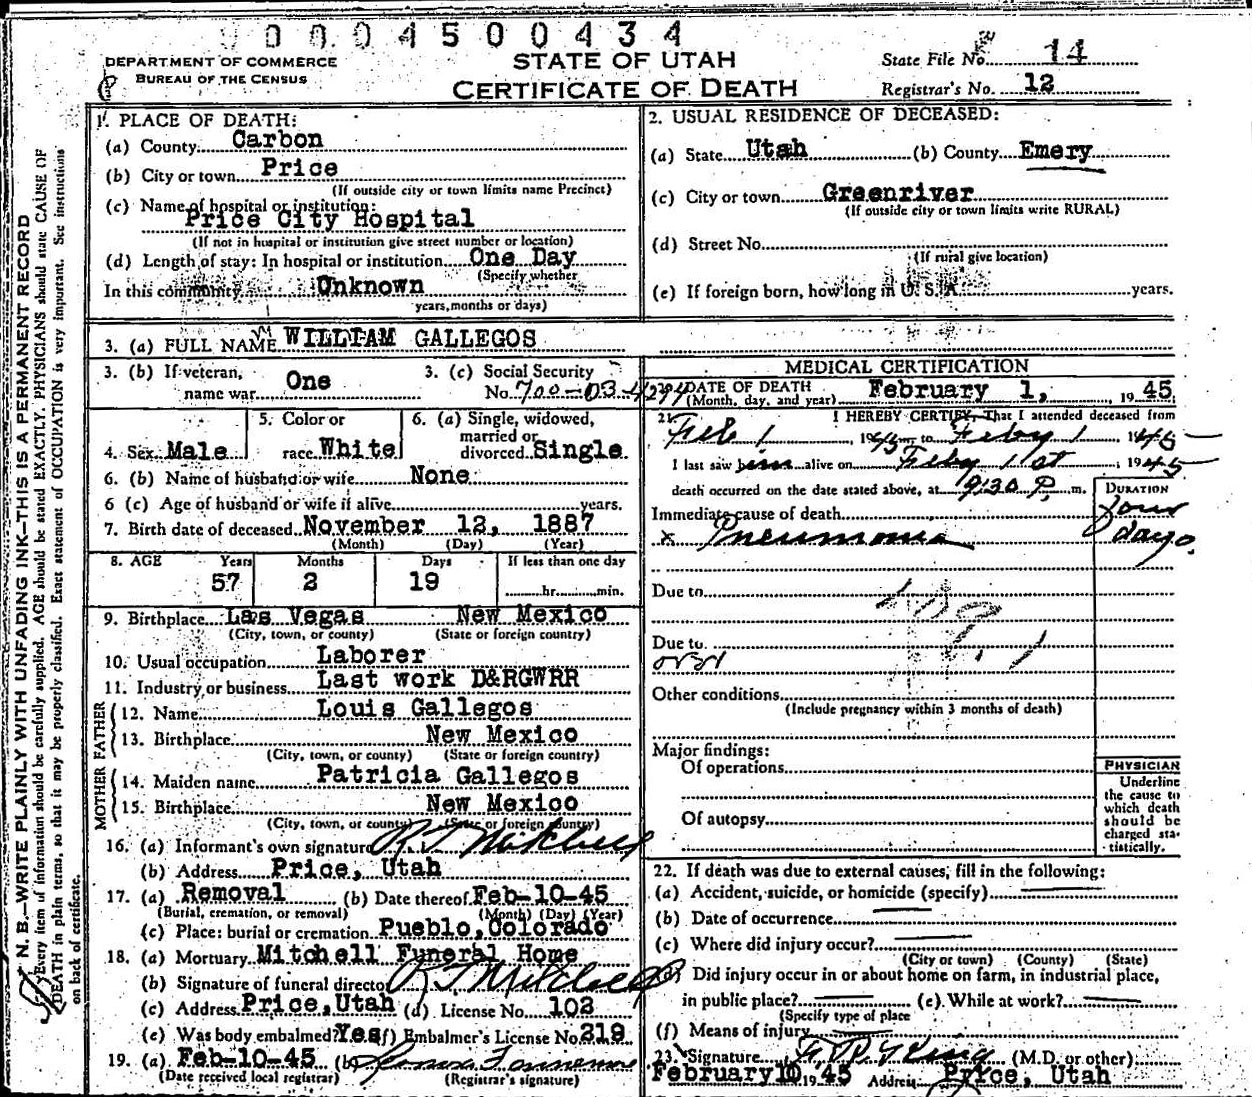 0004500434
DEPARTMENT OF COMMERCE
BUREAU OF THE CENSUS
STATE OF UTAH
CERTIFICATE OF DEATH
State File No. 14
Registrar's No. 12
N. B.—WRITE PLAINLY WITH UNFADING INK—THIS IS A PERMANENT RECORD
Every item of information should be carefully supplied. AGE should be stated EXACTLY. PHYSICIANS should state CAUSE OF
DEATH in plain terms, so that it may be properly classified. Exact statement of OCCUPATION is very important. See instructions
on back of certificate.
1. PLACE OF DEATH:
(a) County Carbon
(b) City or town Price
(If outside city or town limits name Precinct)
(c) Name of hospital or institution:
Price City Hospital
(If not in hospital or institution give street number or location)
(d) Length of stay: In hospital or institution One Day
(Specify whether
In this community Unknown
years, months or days)
2. USUAL RESIDENCE OF DECEASED:
(a) State Utah (b) County Emery
(c) City or town Greenriver
(If outside city or town limits write RURAL)
(d) Street No.
(If rural give location)
(e) If foreign born, how long in U. S. A. years.
3. (a) FULL NAME WILLIAM GALLEGOS
3. (b) If veteran, name war One
3. (c) Social Security No. 700-03-4294
4. Sex Male
5. Color or race White
6. (a) Single, widowed, married or divorced Single
6. (b) Name of husband or wife None
6 (c) Age of husband or wife if alive years.
7. Birth date of deceased November 12, 1887
(Month) (Day) (Year)
8. AGE Years Months Days If less than one day
57 2 19 hr. min.
9. Birthplace Las Vegas New Mexico
(City, town, or county) (State or foreign country)
10. Usual occupation Laborer
11. Industry or business Last work D&RGWRR
FATHER
12. Name Louis Gallegos
13. Birthplace New Mexico
(City, town, or county) (State or foreign country)
MOTHER
14. Maiden name Patricia Gallegos
15. Birthplace New Mexico
(City, town, or county) (State or foreign country)
16. (a) Informant's own signature R T Mitchell
(b) Address Price, Utah
17. (a) Removal (b) Date thereof Feb-10-45
(Burial, cremation, or removal) (Month) (Day) (Year)
(c) Place: burial or cremation Pueblo, Colorado
18. (a) Mortuary Mitchell Funeral Home
(b) Signature of funeral director R T Mitchell
(c) Address Price, Utah (d) License No. 102
(e) Was body embalmed? Yes (f) Embalmer's License No. 219
19. (a) Feb-10-45 (b)
(Date received local registrar) (Registrar's signature)
MEDICAL CERTIFICATION
20. DATE OF DEATH February 1, 1945
(Month, day, and year)
21. I HEREBY CERTIFY, That I attended deceased from
Feb 1, 1945 to Feby 1 1945
I last saw him alive on Feby 1st, 1945
death occurred on the date stated above, at 9:30 P. m.
DURATION
Immediate cause of death four
x Pneumonia days
Due to
Due to
Other conditions
(Include pregnancy within 3 months of death)
Major findings:
Of operations
Of autopsy
PHYSICIAN
Underline
the cause to
which death
should be
charged sta-
tistically.
22. If death was due to external causes, fill in the following:
(a) Accident, suicide, or homicide (specify)
(b) Date of occurrence
(c) Where did injury occur?
(City or town) (County) (State)
(d) Did injury occur in or about home on farm, in industrial place,
in public place? (e) While at work?
(Specify type of place
(f) Means of injury
23. Signature (M.D. or other)
February 10 1945 Address Price, Utah